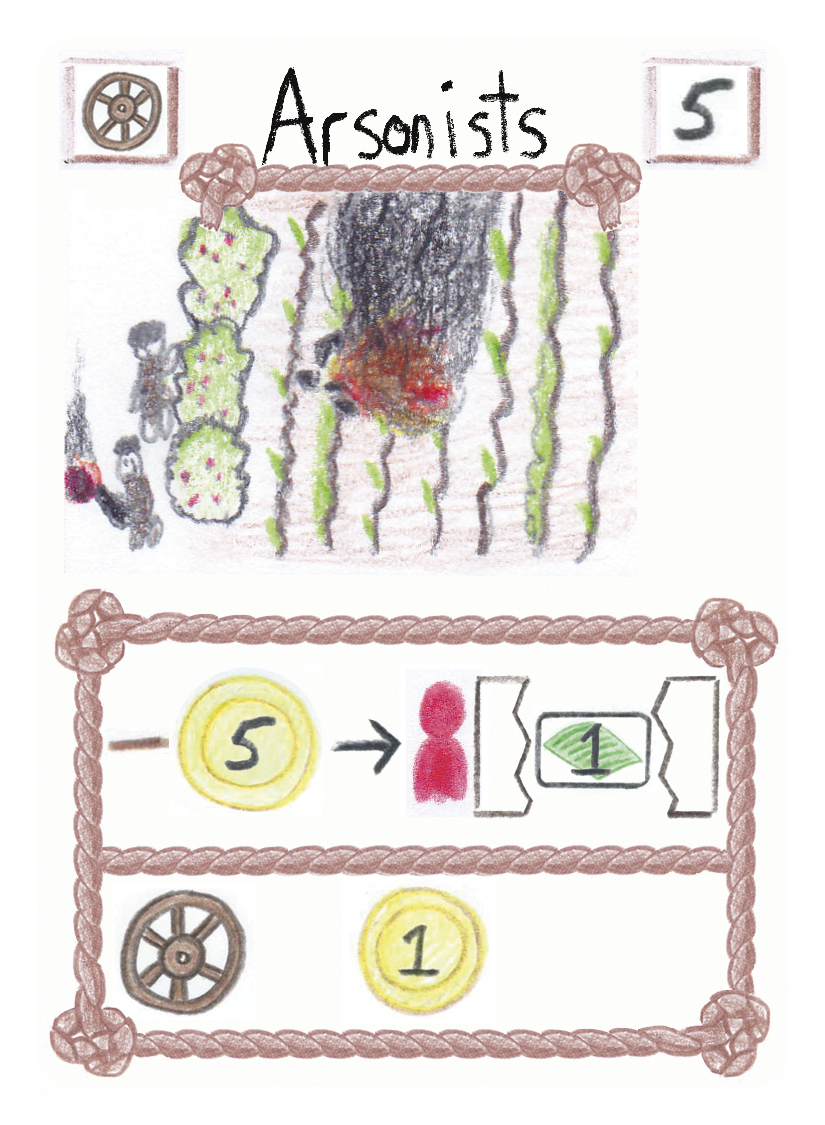 Arsonists
5
5
1
1